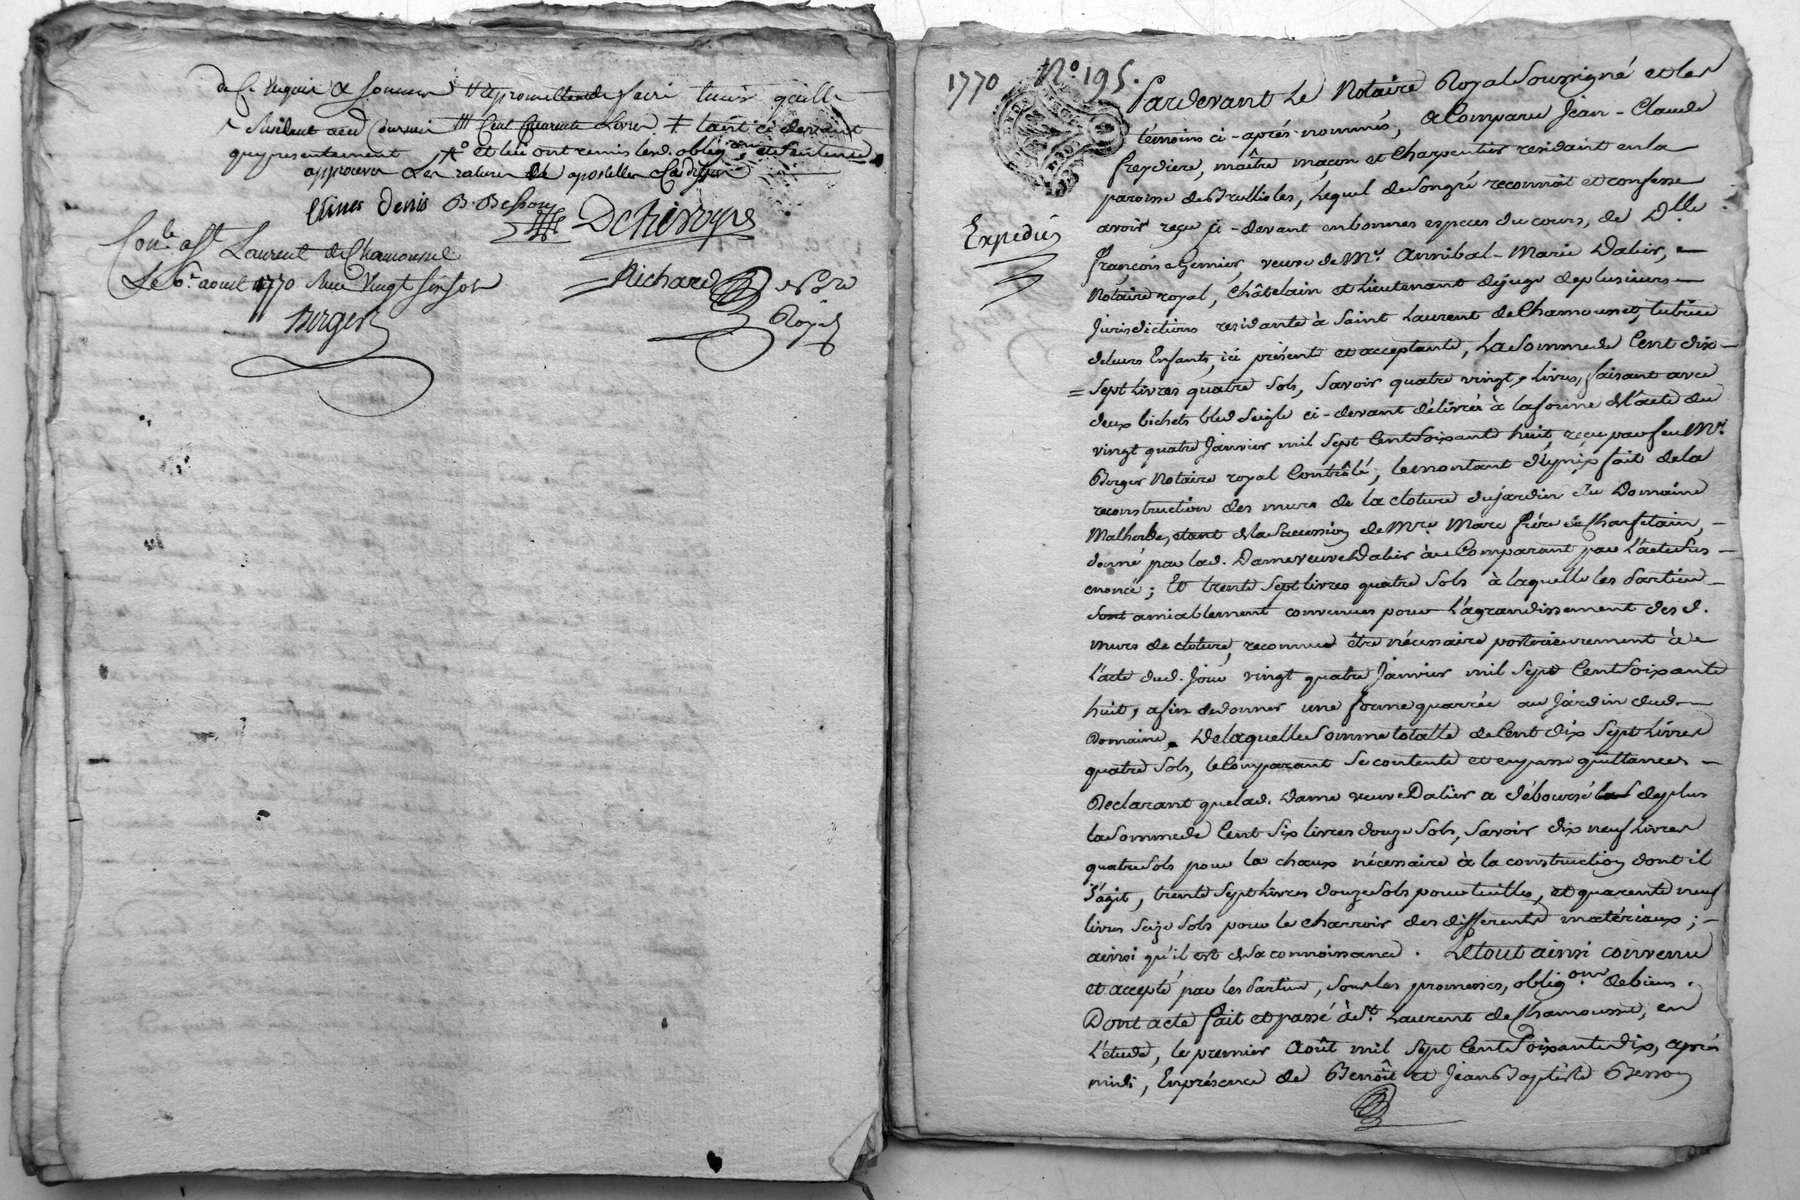 qu'elle
tant ci devant
que presentement et lui ont remis lesd. oblig.on et sentence
approuver Les ratures apostilles
Denis B. Besson
Dchiroype
Con.le a St. Laurent de Chamousset
Le 6.e aoust 1770 Reçu Vingt six sols
Berger
Richard No.re
Royal
1770 N.o 195.
Expédiés
Pardevant Le Notaire Royal Soussigné et les
témoins ci-après nommés, a Comparu Jean-Claude
freydiere, maître maçon et Charpentier residant en la
paroisse de Brullioles, Lequel de Son gré reconnoit et confesse
avoir reçu ci-devant en bonnes especes du cours, de D.lle
françoise Grenier, veuve de M.e Annibal-Marie Dalier,
Notaire royal, Châtelain et Lieutenant de juge de plusieurs
Jurisdictions residante à Saint Laurent de Chamousset, tutrice
de leurs Enfants, ici présent et acceptante, La Somme de Cent dix-
sept Livres quatre Sols, Savoir quatre vingt Livres, faisant avec
deux bichets bled Seigle ci-devant délivrés à la forme de l'acte du
vingt quatre Janvier mil Sept Cent Soixante huit, reçu par feu M.e
Berger Notaire royal Contrôlé, le montant du prix fait de la
reconstruction des murs de la cloture du jardin du Domaine
Malherbe, étant de la Succession de M.re Marc frère de Chanfelain,
donné par lad. Dame veuve Dalier au Comparant par L'acte Sus-
enoncé; Et trente Sept Livres quatre Sols à laquelle les Parties
Sont amiablement convenues pour L'agrandissement desd.
murs de cloture, reconnue être nécessaire postérieurement à
L'acte dud. Jour vingt quatre Janvier mil Sept Cent Soixante
huit, afin de donner une forme quarrée au Jardin dud.
Domaine. De laquelle Somme totalle de Cent dix Sept Livres
quatre Sols, le Comparant Se contente et en passe quittances
Déclarant que lad. Dame veuve Dalier a déboursé de plus
la Somme de Cent Six livres douze Sols, Savoir dix neuf Livres
quatre Sols pour la chaux nécessaire à la construction dont il
S'agit, trente Sept Livres douze Sols pour tuilles, et quarente neuf
livres Seize Sols pour le charroir des differents matériaux;
ainsi qu'il est de Sa connoissance. Le tout ainsi convenu
et accepté par les Parties, Sous les promesses, oblig.ons de biens.
Dont acte fait et passé à St. Laurent de Chamousset, en
L'étude, le premier Août mil Sept Cent Soixante dix, après
midi, En présence de Benoît et Jean Baptiste Besson